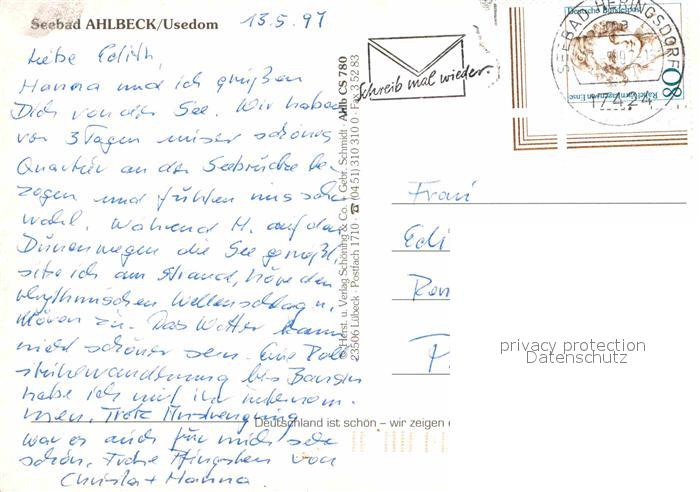 Seebad AHLBECK/Usedom
13.5.97
Liebe Edith,
Hanna und ich grüßen
Dich von der See. Wir haben
vor 3 Tagen unser schönes
Quartier an der Seebrücke be-
zogen und fühlen uns sehr
wohl. Während H. auf den
Dünenwegen die See genießt,
sitze ich am Strand, höre den
rhythmischen Wellenschlag u.
Möven zu. Das Wetter kann
nicht schöner sein. Eine Roll-
stuhlwanderung bis Bansin
habe ich mit ihr unternom-
men. Trotz Anstrengung
war es auch für mich sehr
schön. Frohe Pfingsten von
Christa + Hanna
© Herst. u. Verlag Schöning & Co. + Gebr. Schmidt · Ahlb CS 780
23506 Lübeck · Postfach 1710 · ☎ (04 51) 310 310 · Fax 3 52 83
Schreib mal wieder.
Deutsche Bundespost
80
Rahel Varnhagen von Ense
SEEBAD HERINGSDORF
17424
Frau
Edi
Ren
privacy protection
Datenschutz
Deutschland ist schön – wir zeigen